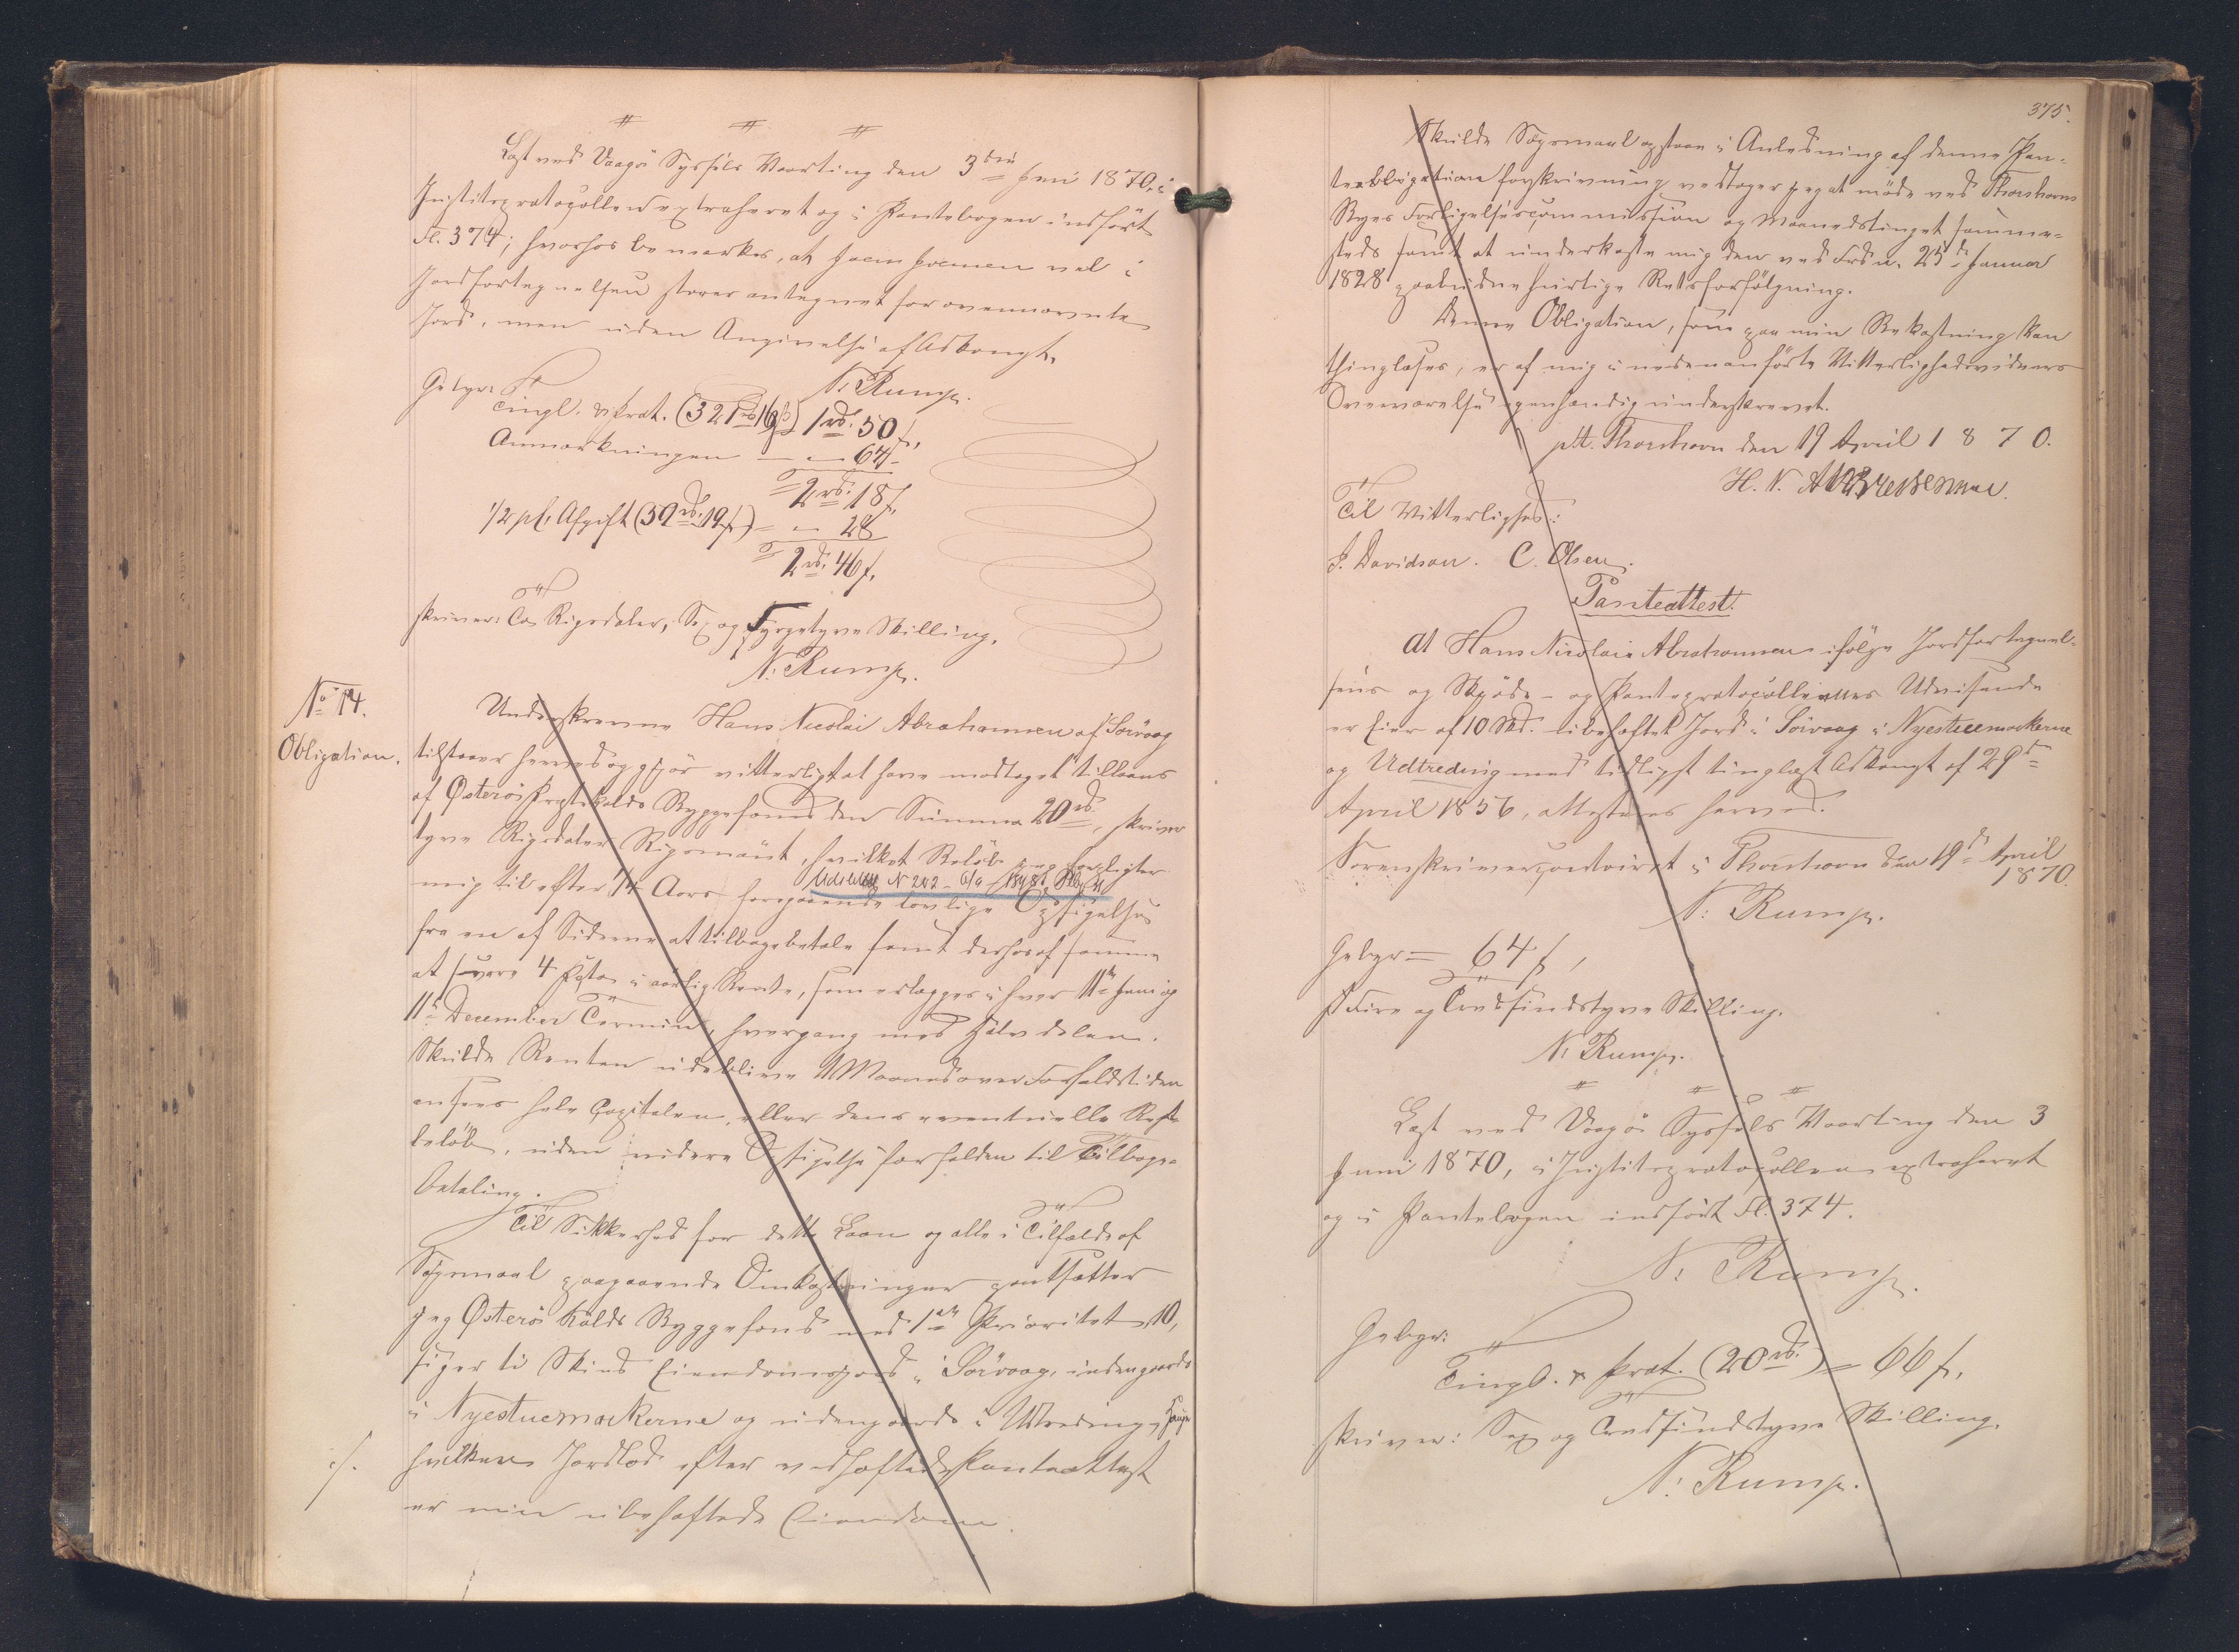 Læst ved Vaagø Syssels Vaarting den 3die Juni 1870, i
Justitsprotocollen extraheret og i Pantebogen indført
Fl. 374; hvorhos bemærkes, at Joen Joensen vel i
Jordfortegnelsen staaer antegnet for ovennævnte
Jord, men uden Angivelse af Adkomst.
N. Rump.
Gebyr:
Tingl. & Prot. (321 rd 16 ß) 1 rd. 50 ß,
Anmærkningen — " — 64 -
2 rd. 18 ß,
1/2 pCt. Afgift (39 rd. 19 ß) — " — 28
2 rd. 46 ß,
skriver: To Rigsdaler, Sex og Fyrgetyve Skilling.
N. Rump.
No 14.
Obligation.
Underskrevne Hans Nicolai Abrahamsen af Sörvaag
tilstaaer herved og gjør vitterligt at have modtaget tillaans
af Østerøes Præstekalds Byggefond den Summa 20 rd, skriver
tyve Rigsdaler Rigsmønt, hvilket Beløb jeg forpligter
Udslettet N 242 - 6/9 -
mig til efter 1/4 Aars foregaaende lovlige Opsigelse
fra en af Siderne at tilbagebetale samt derhos af samme
at svare 4 Pct. i aarlig Rente, som erlægges i hver 11te Juni og
11te December Termin, hvergang med Halvdelen.
Skulde Renten udeblive 1 Maaned over Forfaldstiden
ansees hele Capitalen, eller dens eventuelle Rest-
beløb, uden videre Opsigelse forfalden til Tilbage-
betaling.
Til Sikkerhed for dette Laan og alle i Tilfælde af
Søgsmaal paagaaende Omkostninger pantsætter
jeg Østerøe Kalds Byggefond med 1ste Prioritet 10,
siger ti Skind Eiendomsjord i Sörvaag, indengaards
i Nyestuemarkerne og udengaards i Udtreding, Hauge
·/. hvilken Jordlod efter vedhæftede Panteattest
er min ubehæftede Eiendom.
375.
Skulde Søgsmaal opstaae i Anledning af denne Pan-
teobligations forskrivning vedtager jeg at møde ved Thorshavns
Byes Forligelsescommission og Maanedstinget samme-
steds samt at underkaste mig den ved Frdn. 25de Januar
1828 paabudne hurtige Retsforfølgning.
Denne Obligation, som paa min Bekostning kan
thinglæses, er af mig i nedenanførte Vitterlighedsvidners
Overværelse egenhændig underskrevet.
p.t. Thorshavn den 19 April 1870.
H. N. Abrahamsen.
Til Vitterlighed:
J. Davidsen. C. Olsen.
Panteattest.
At Hans Nicolai Abrahamsen ifølge Jordfortegnel-
sens og Skjøde- og Panteprotocollernes Udvisende
er Eier af 10 Skd. ubehæftet Jord i Sörvaag i Nyestuemarkerne
og Udtreding med tidligst tinglæst Adkomst af 29de
April 1856, attesteres herved.
Sorenskrivercontoiret i Thorshavn den 19de April
1870.
N. Rump.
Gebyr = 64 ß,
Fire og Tredsindstyve Skilling.
N. Rump.
Læst ved Vaagø Syssels Vaarting den 3
Juni 1870, i Justitsprotocollen extraheret
og i Pantebogen indført Fl. 374.
N. Rump.
Gebyr:
Tingl. & Prot. (20 rd.) = 66 ß,
skriver: Sex og Tredsindstyve Skilling.
N. Rump.